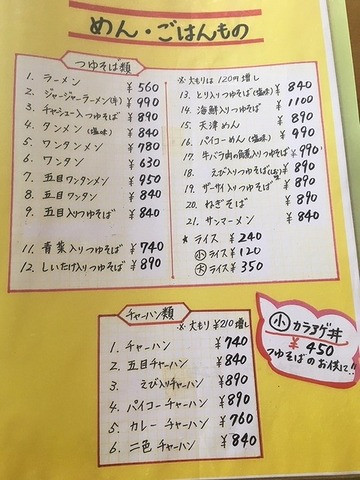 めん・ごはんもの
つゆそば類
1. ラーメン ¥560
2. ジャージャーラーメン(辛) ¥990
3. チャシュー入りつゆそば ¥890
4. タンメン(塩味) ¥840
5. ワンタンメン ¥780
6. ワンタン ¥630
7. 五目ワンタンメン ¥950
8. 五目ワンタン ¥840
9. 五目入りつゆそば ¥840
11. 青菜入りつゆそば ¥740
12. しいたけ入りつゆそば ¥890
※ 大もりは120円増し
13. とり入りつゆそば(塩味) ¥840
14. 海鮮入りつゆそば ¥1100
15. 天津めん ¥890
16. パイコーめん(塩味) ¥990
17. 牛バラ肉の煮入りつゆそば ¥990
18. えび入りつゆそば ¥890
19. ザーサイ入りつゆそば ¥890
20. ねぎそば ¥890
21. サンマーメン ¥840
★ ライス ¥240
小 ライス ¥120
大 ライス ¥350
チャーハン類
※ 大もり ¥210 増し
1. チャーハン ¥740
2. 五目チャーハン ¥840
3. えび入りチャーハン ¥890
4. パイコーチャーハン ¥890
5. カレーチャーハン ¥760
6. 二色チャーハン ¥840
小 カラアゲ丼
¥450
つゆそばのお供に!!